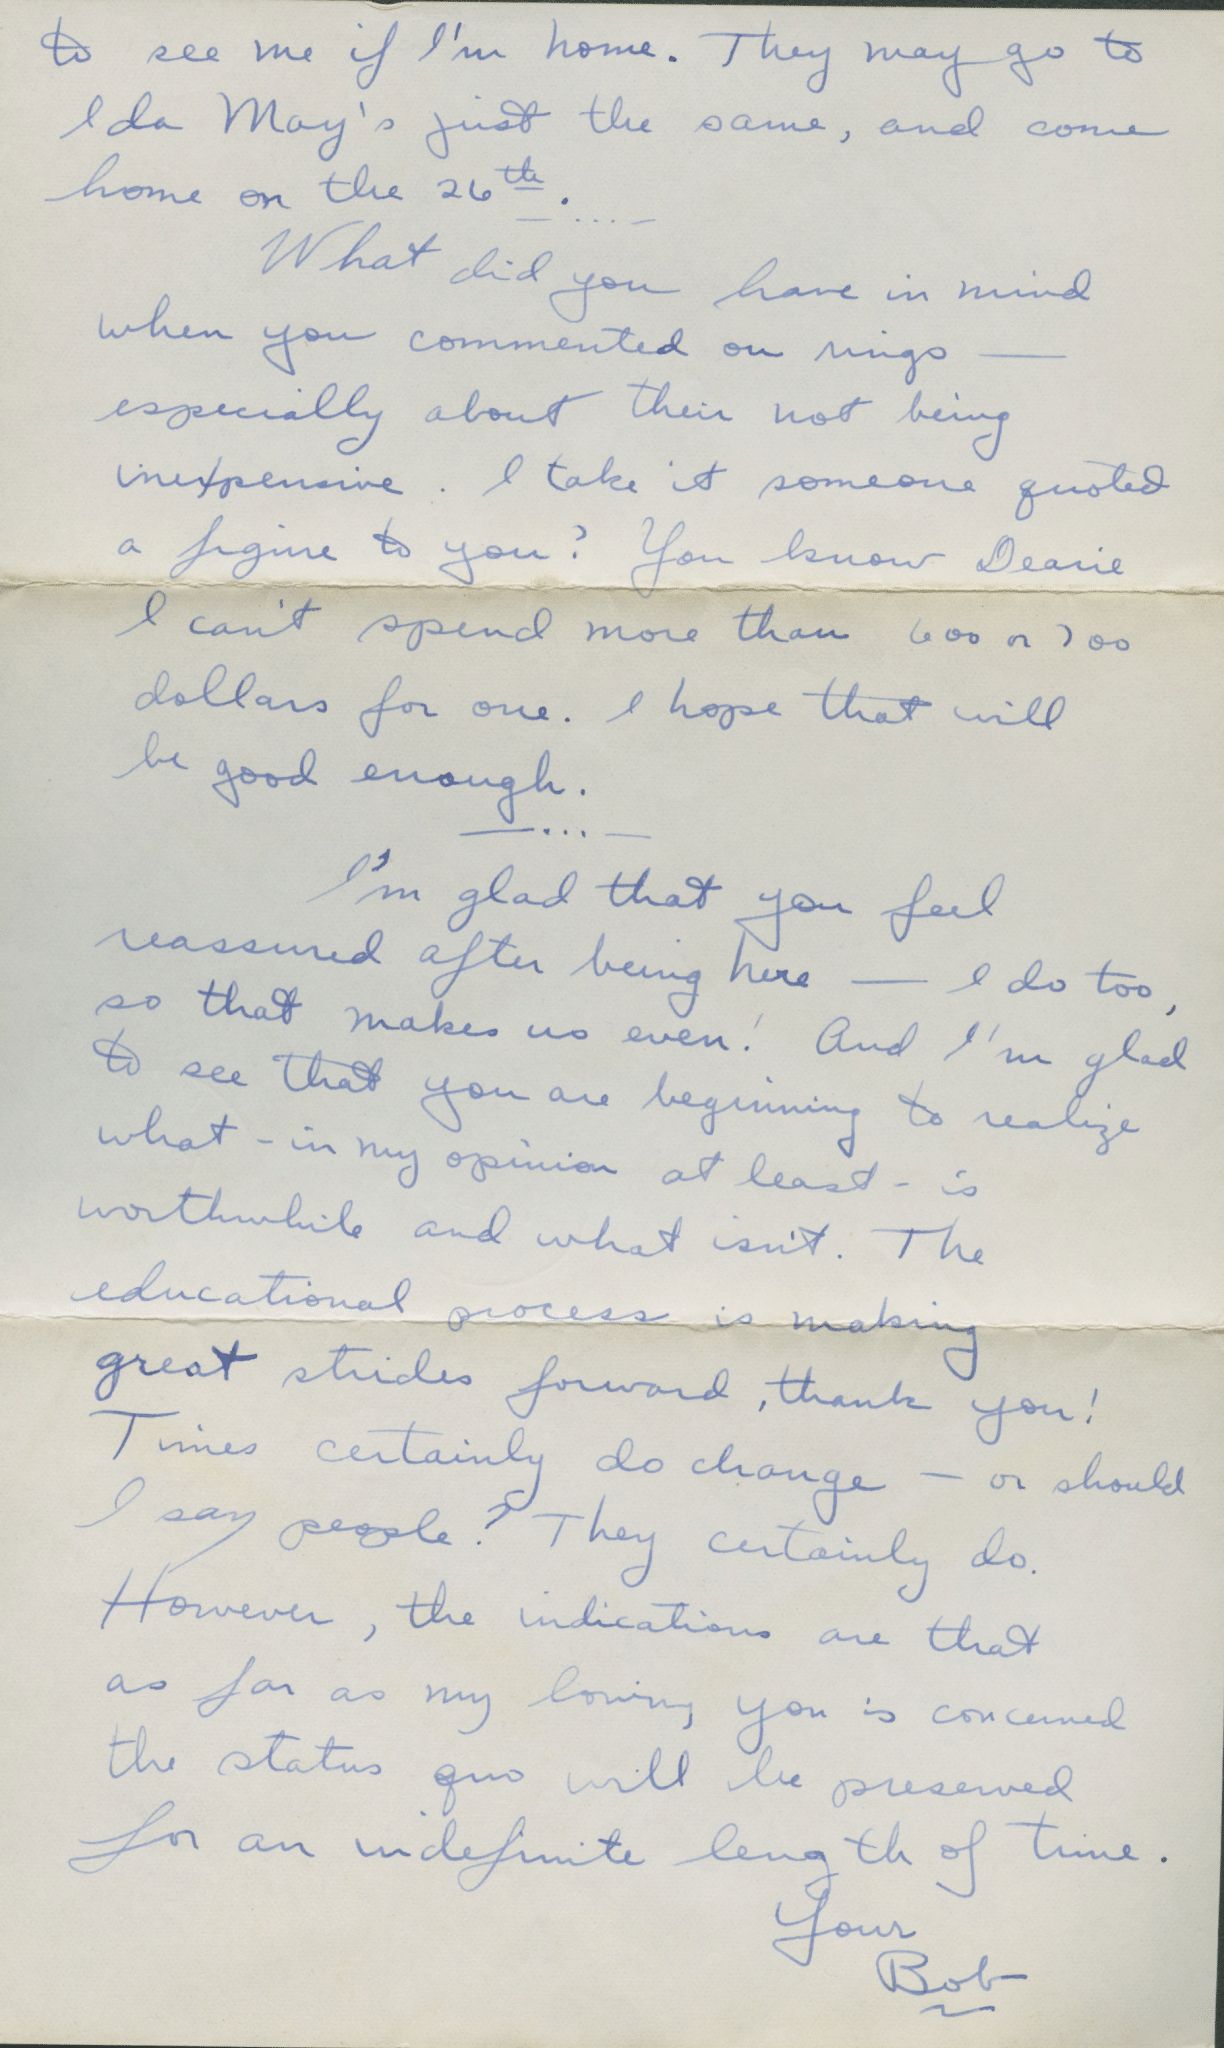 to see me if I'm home. They may go to
Ida May's just the same, and come
home on the 26th.
— ... —
What did you have in mind
when you commented on rings —
especially about their not being
inexpensive. I take it someone quoted
a figure to you? You know Dearie
I can't spend more than 600 or 700
dollars for one. I hope that will
be good enough.
— ... —
I'm glad that you feel
reassured after being here — I do too,
so that makes us even! And I'm glad
to see that you are beginning to realize
what - in my opinion at least - is
worthwhile and what isn't. The
educational process is making
great strides forward, thank you!
Times certainly do change — or should
I say people? They certainly do.
However, the indications are that
as far as my loving you is concerned
the status quo will be preserved
for an indefinite length of time.
Your
Bob